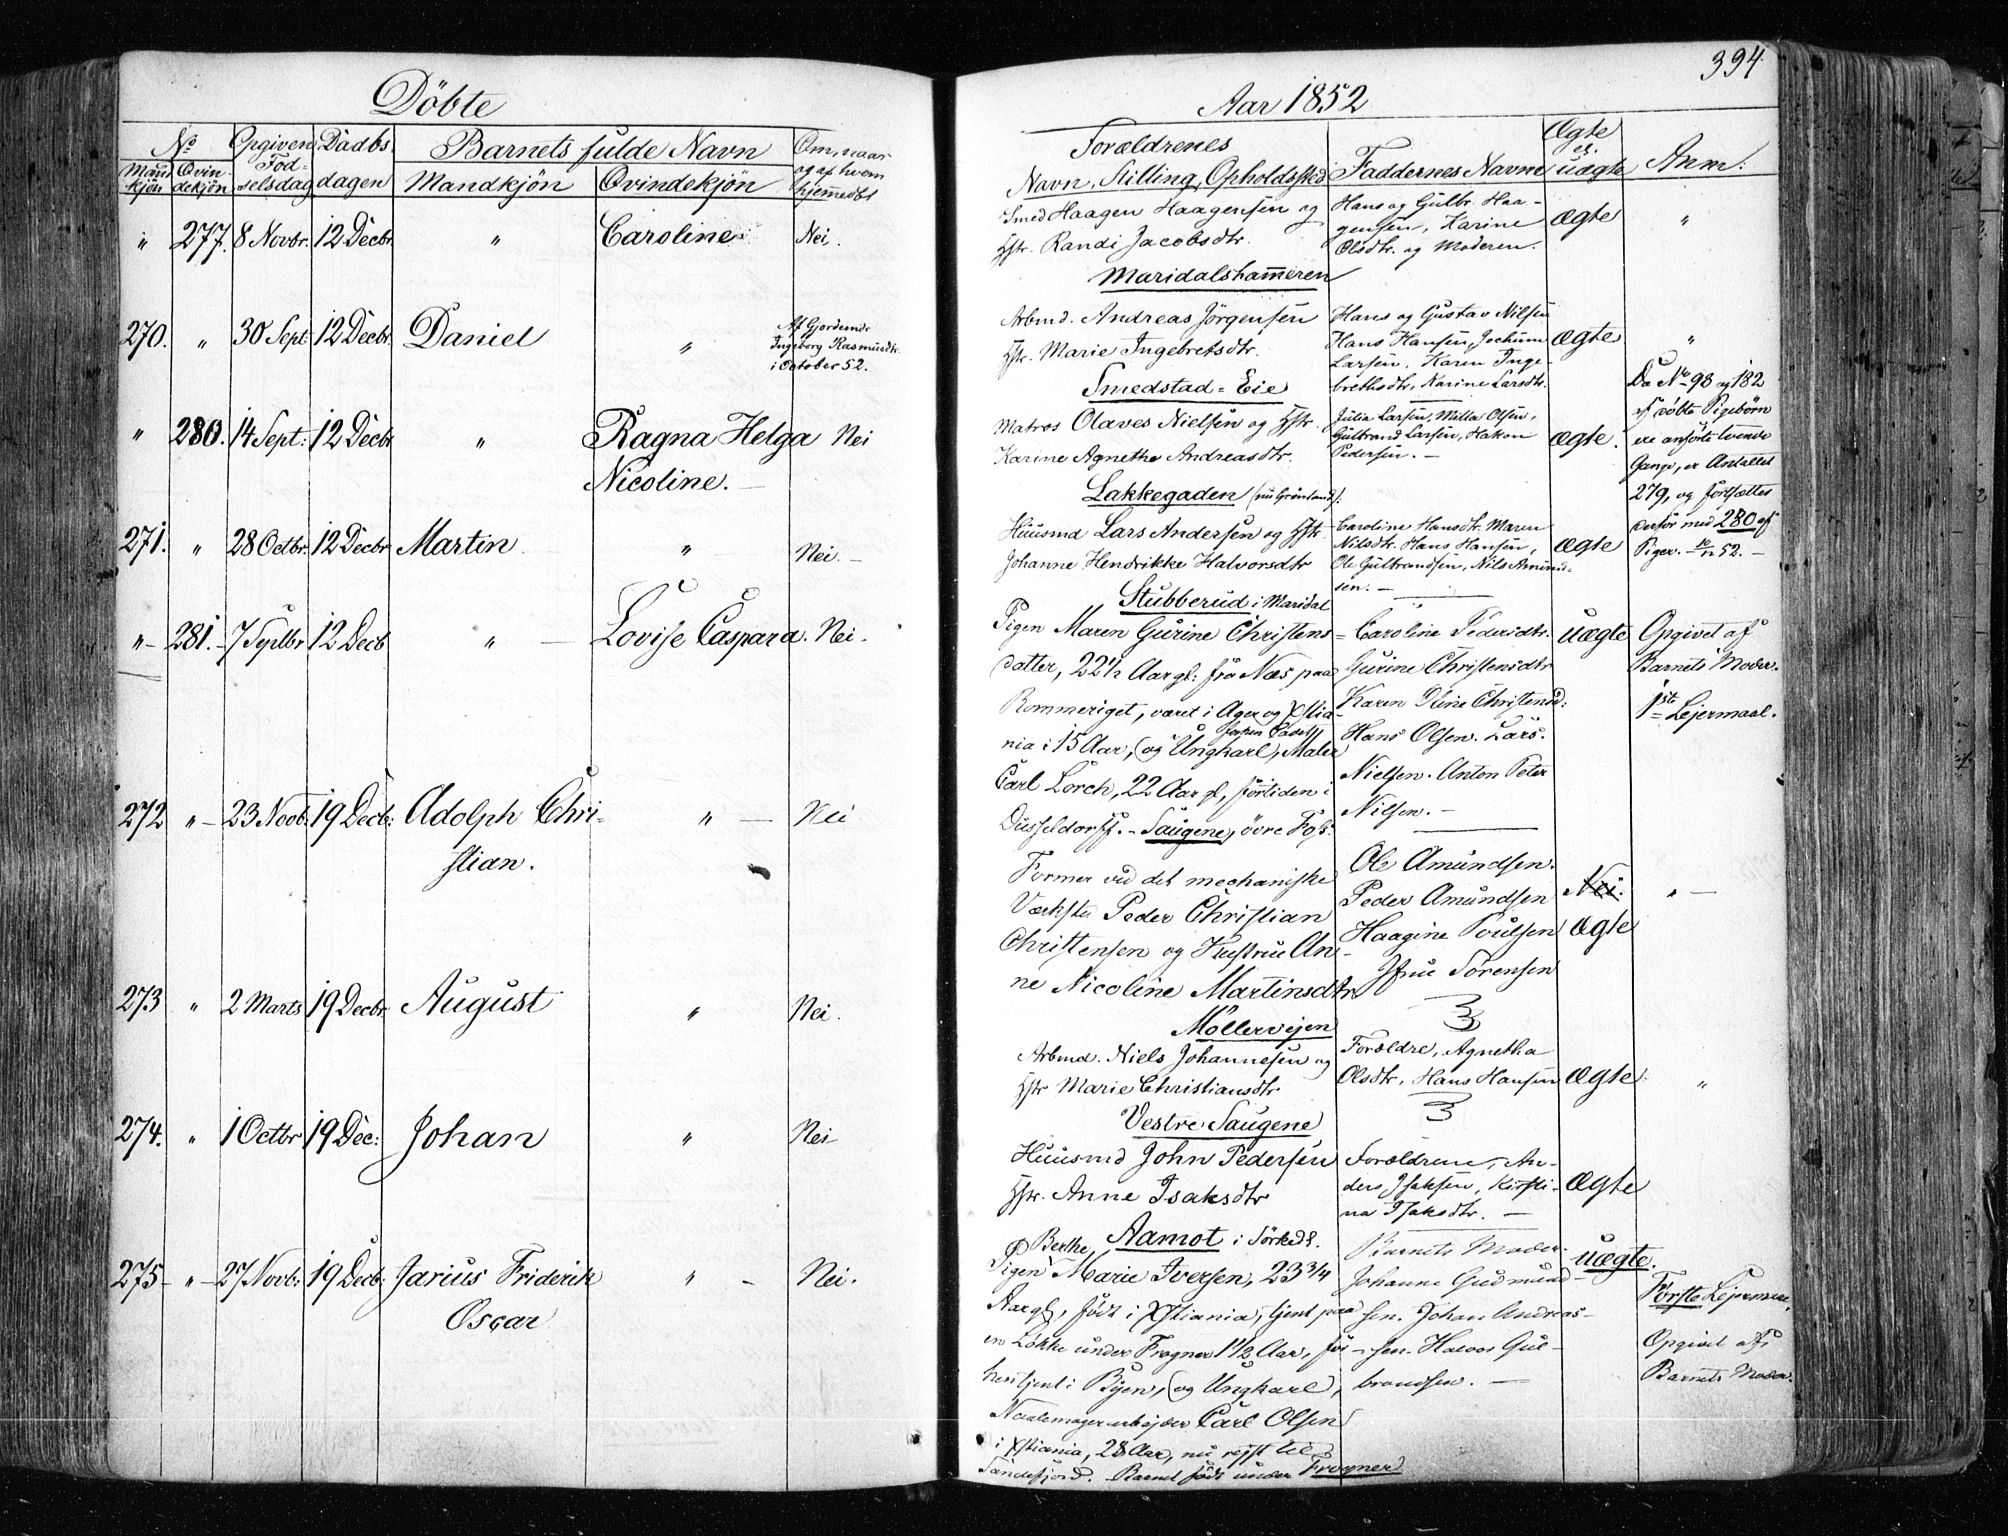 394
Döbte
Aar 1852
No
Opgiven
Daabs
Barnets fulde Navn
Om, naar
Mand
Qvin-
Fød-
og af hvem
kjön
dekjön
selsdag
dagen
Mandkjön
Qvindekjön
hjemmedbt
Forældrenes
Navn, Stilling, Opholdssted
Faddernes Navne
Ægte
el.
uægte
Anm:
" 277. 8 Novbr. 12 Decbr " Caroline Nei.
Smed Haagen Haagensen og
Hstr. Randi Jacobsdtr.
Maridalshammeren
Hans og Gulbr. Haa-
gensen, Karine
Olsdtr. og Moderen.
Ægte "
270. " 30 Sept: 12 Decbr. Daniel "
Af Gjordemdr
Ingeborg Rasmusdtr.
i October 52.
Arbmd. Andreas Jörgensen
Hstr. Marie Ingebretsdtr.
Smedstad-Eie
Hans og Gustav Nilsen
Hans Hansen, Jochum
Larsen, Karen Inge-
brethsdtr, Karine Larsdtr.
Ægte "
" 280. 14 Sept: 12 Decbr " Ragna Helga Nei
Nicoline.
Matros Olaves Nielsen og Hstr.
Karine Agnethe Andreasdtr.
Lakkegaden (nu Grönland):
Julia Larsen, Milla Olsen,
Gulbrand Larsen, Hakon
Pedersen.
Ægte.
Da No 98 og 182
af döbte Pigebörn
ere anförte tvende
Gange, er Antallet
279, og fortsættes
derfor med 280 af
Piger. 52.
271. " 28 Octbr. 12 Decbr Martin " Nei.
Huusmd Lars Andersen og Hstr.
Johanne Hendrikke Halvorsdtr
Stubberud i Maridal
Caroline Hansdtr. Maren
Nilsdtr. Hans Hansen,
Ole Gulbrandsen, Nils Amund-
sen.
Ægte
" 281. 7 Septbr 12 Decb " Lovise Caspara. Nei.
Pigen Maren Gurine Christens-
datter, 22½ Aar gl: fra Næs paa
Rommeriget, været i Ager og Xstia-
nia i 15 Aar, (og Ungkarl, Maler
Carl Lorch, 22 Aar gl, förtiden i
Düsseldorff. Saugene, övre Fos:
Caroline Pedersdtr.
Gurine Christensdtr
Karen Oline Christensd:
Hans Olsen. Lars.
Nielsen. Anton Peter
Nilsen.
uægte
Opgivet af
Barnets Moder.
1ste Lejermaal.
272 " 23 Novb: 19 Decb: Adolph Chri- " Nei
stian.
Former ved det mechaniske
Værksted Peder Christian
Christensen og Hustrue An-
ne Nicoline Martinsdtr
Möllervejen
Ole Amundsen.
Peder Amundsen
Haagine Poulsen
Jfru Sörensen
Nei.
Ægte
"
273 " 2 Marts 19 Decbr. August " Nei.
Arbmd. Niels Johannesen og
Hstr Marie Christiansdtr
Vestre Saugene
Forældre, Agnetha
Olsdtr, Hans Hansen
Ægte "
274. " 1 Octbr 19 Dec: Johan " Nei
Huusmd John Pedersen
Hstr. Anne Isaksdtr
Aamot i Sörkedl.
Forældrene, An-
ders Isaksen, Kirsti-
na Isaksdtr.
Ægte
275 " 27 Novb: 19 Decb: Jarius Friderik " Nei.
Oscar
Berthe
Pigen Marie Iversen, 23¾
Aar gl, födt i Xstiania, tjent paa
en Lökke under Frogner 1½ Aar, för-
hen tjent i Byen, (og Ungkarl,
Naalemagerarbejder Carl Olsen
i Xstiania, 28 Aar, nu rejst til
Sandefjord. Barnet födt under Frogner
Barnets Moder.
Johanne Gudmund-
sen. Johan Andreas-
sen. Halvor Gul-
brandsen.
uægte.
Förste Lejermaal,
Opgivet af
Barnets Moder.